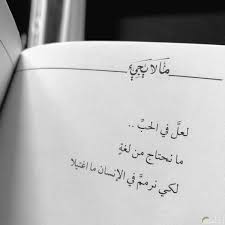 ما لا يجيء
لعلَّ في الحبِّ ..
ما نحتاج من لغةٍ
لكي نرممَّ في الإنسان ما اغتيلا